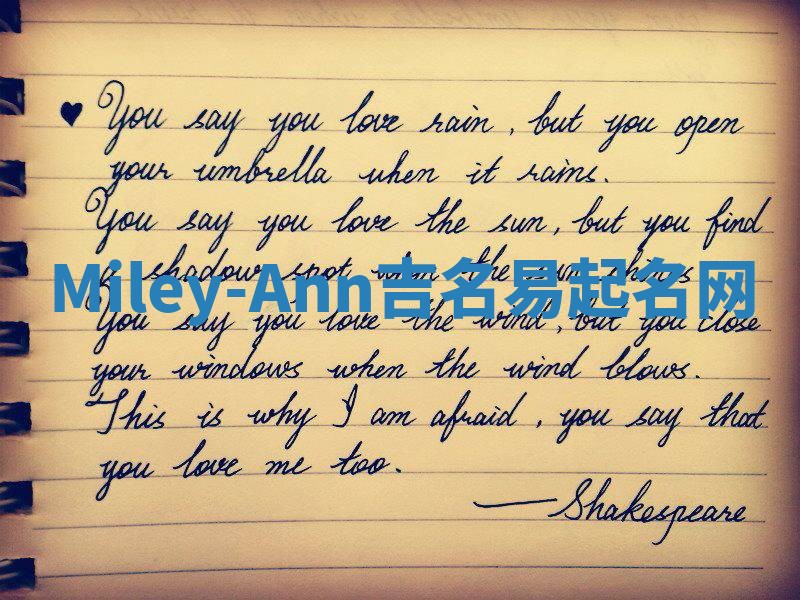 ♥ You say you love rain, but you open
your umbrella when it rains.
You say you love the sun, but you find
a shadow spot when the sun shines
Miley-Ann吉名易起名网
You say you love the wind, but you close
your windows when the wind blows.
This is why I am afraid, you say that
you love me too.
— Shakespeare